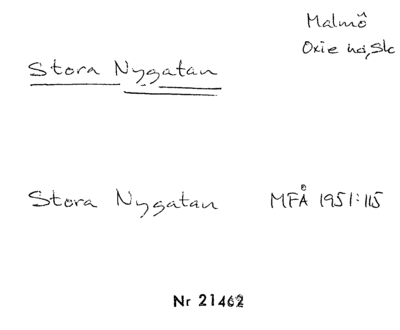 Malmö
Oxie hd, Sk
Stora Nygatan
Stora Nygatan MFÅ 1951:115
Nr 21462